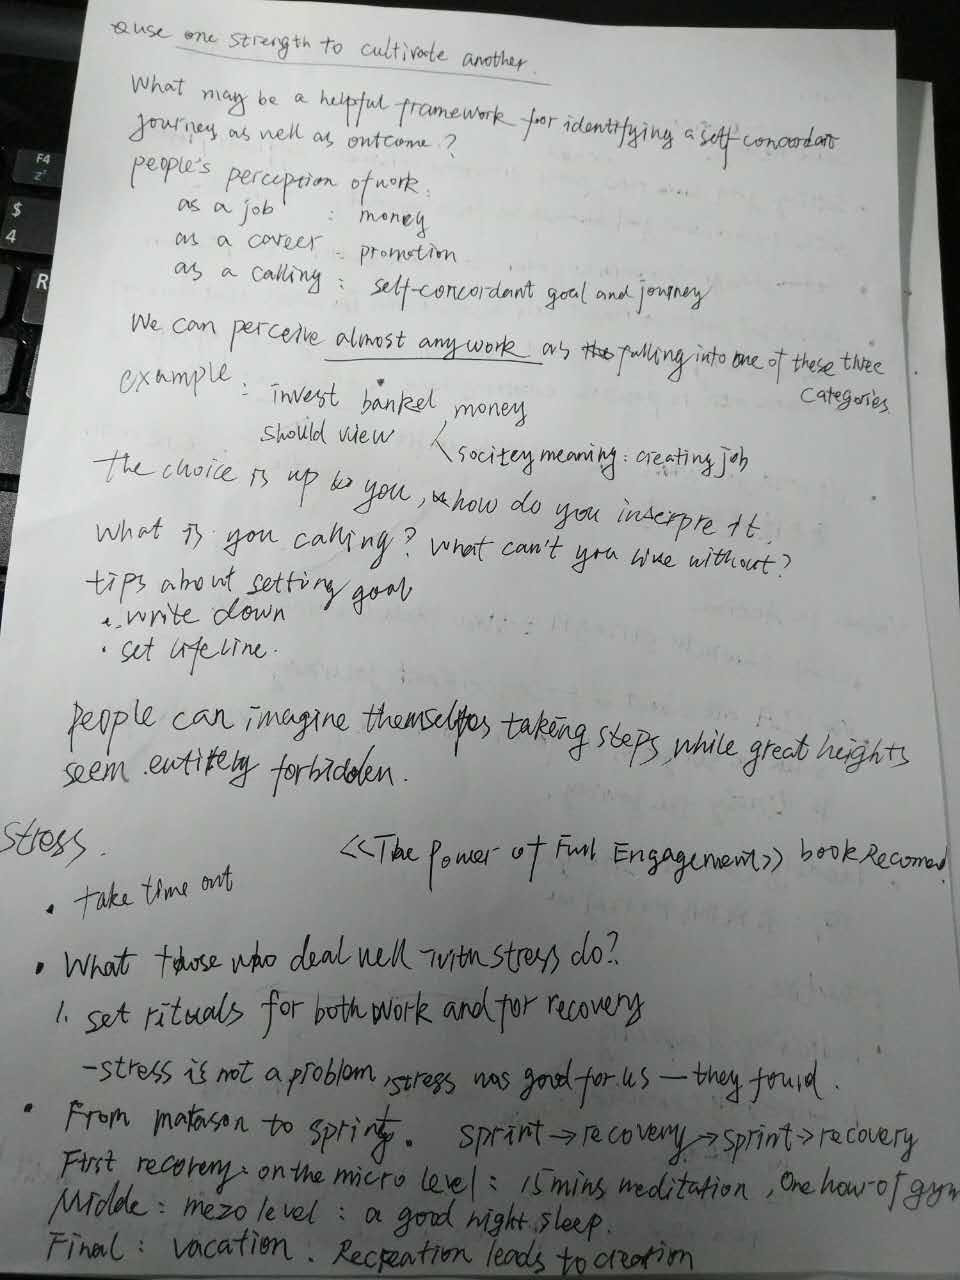 use one strength to cultivate another.
What may be a helpful framework for identifying a self-concordat
journey as well as outcome?
people's perception of work:
as a job : money
as a career : promotion
as a calling : self-concordant goal and journey
We can perceive almost any work as falling into one of these three
categories.
example : invest banker money
should view socitey meaning : creating job
the choice is up to you, how do you inserpre it.
What is you calling? What can't you live without?
tips about setting goal
• write down
• set lifeline.
people can imagine themselves taking steps, while great heights
seem entirely forbidden.
stress.
<<The Power of Full Engagement>> book Recomend.
• take time out
• What those who deal well with stress do?
1. set rituals for both work and for recovery
-stress is not a problem, stress was good for us — they found.
• From matason to sprint. sprint → recovery → sprint → recovery
First recovery: on the micro level : 15 mins meditation, One hour of gym
Midde : mezo level : a good night sleep.
Final : vacation. Recreation leads to creation
F4
$
4
R